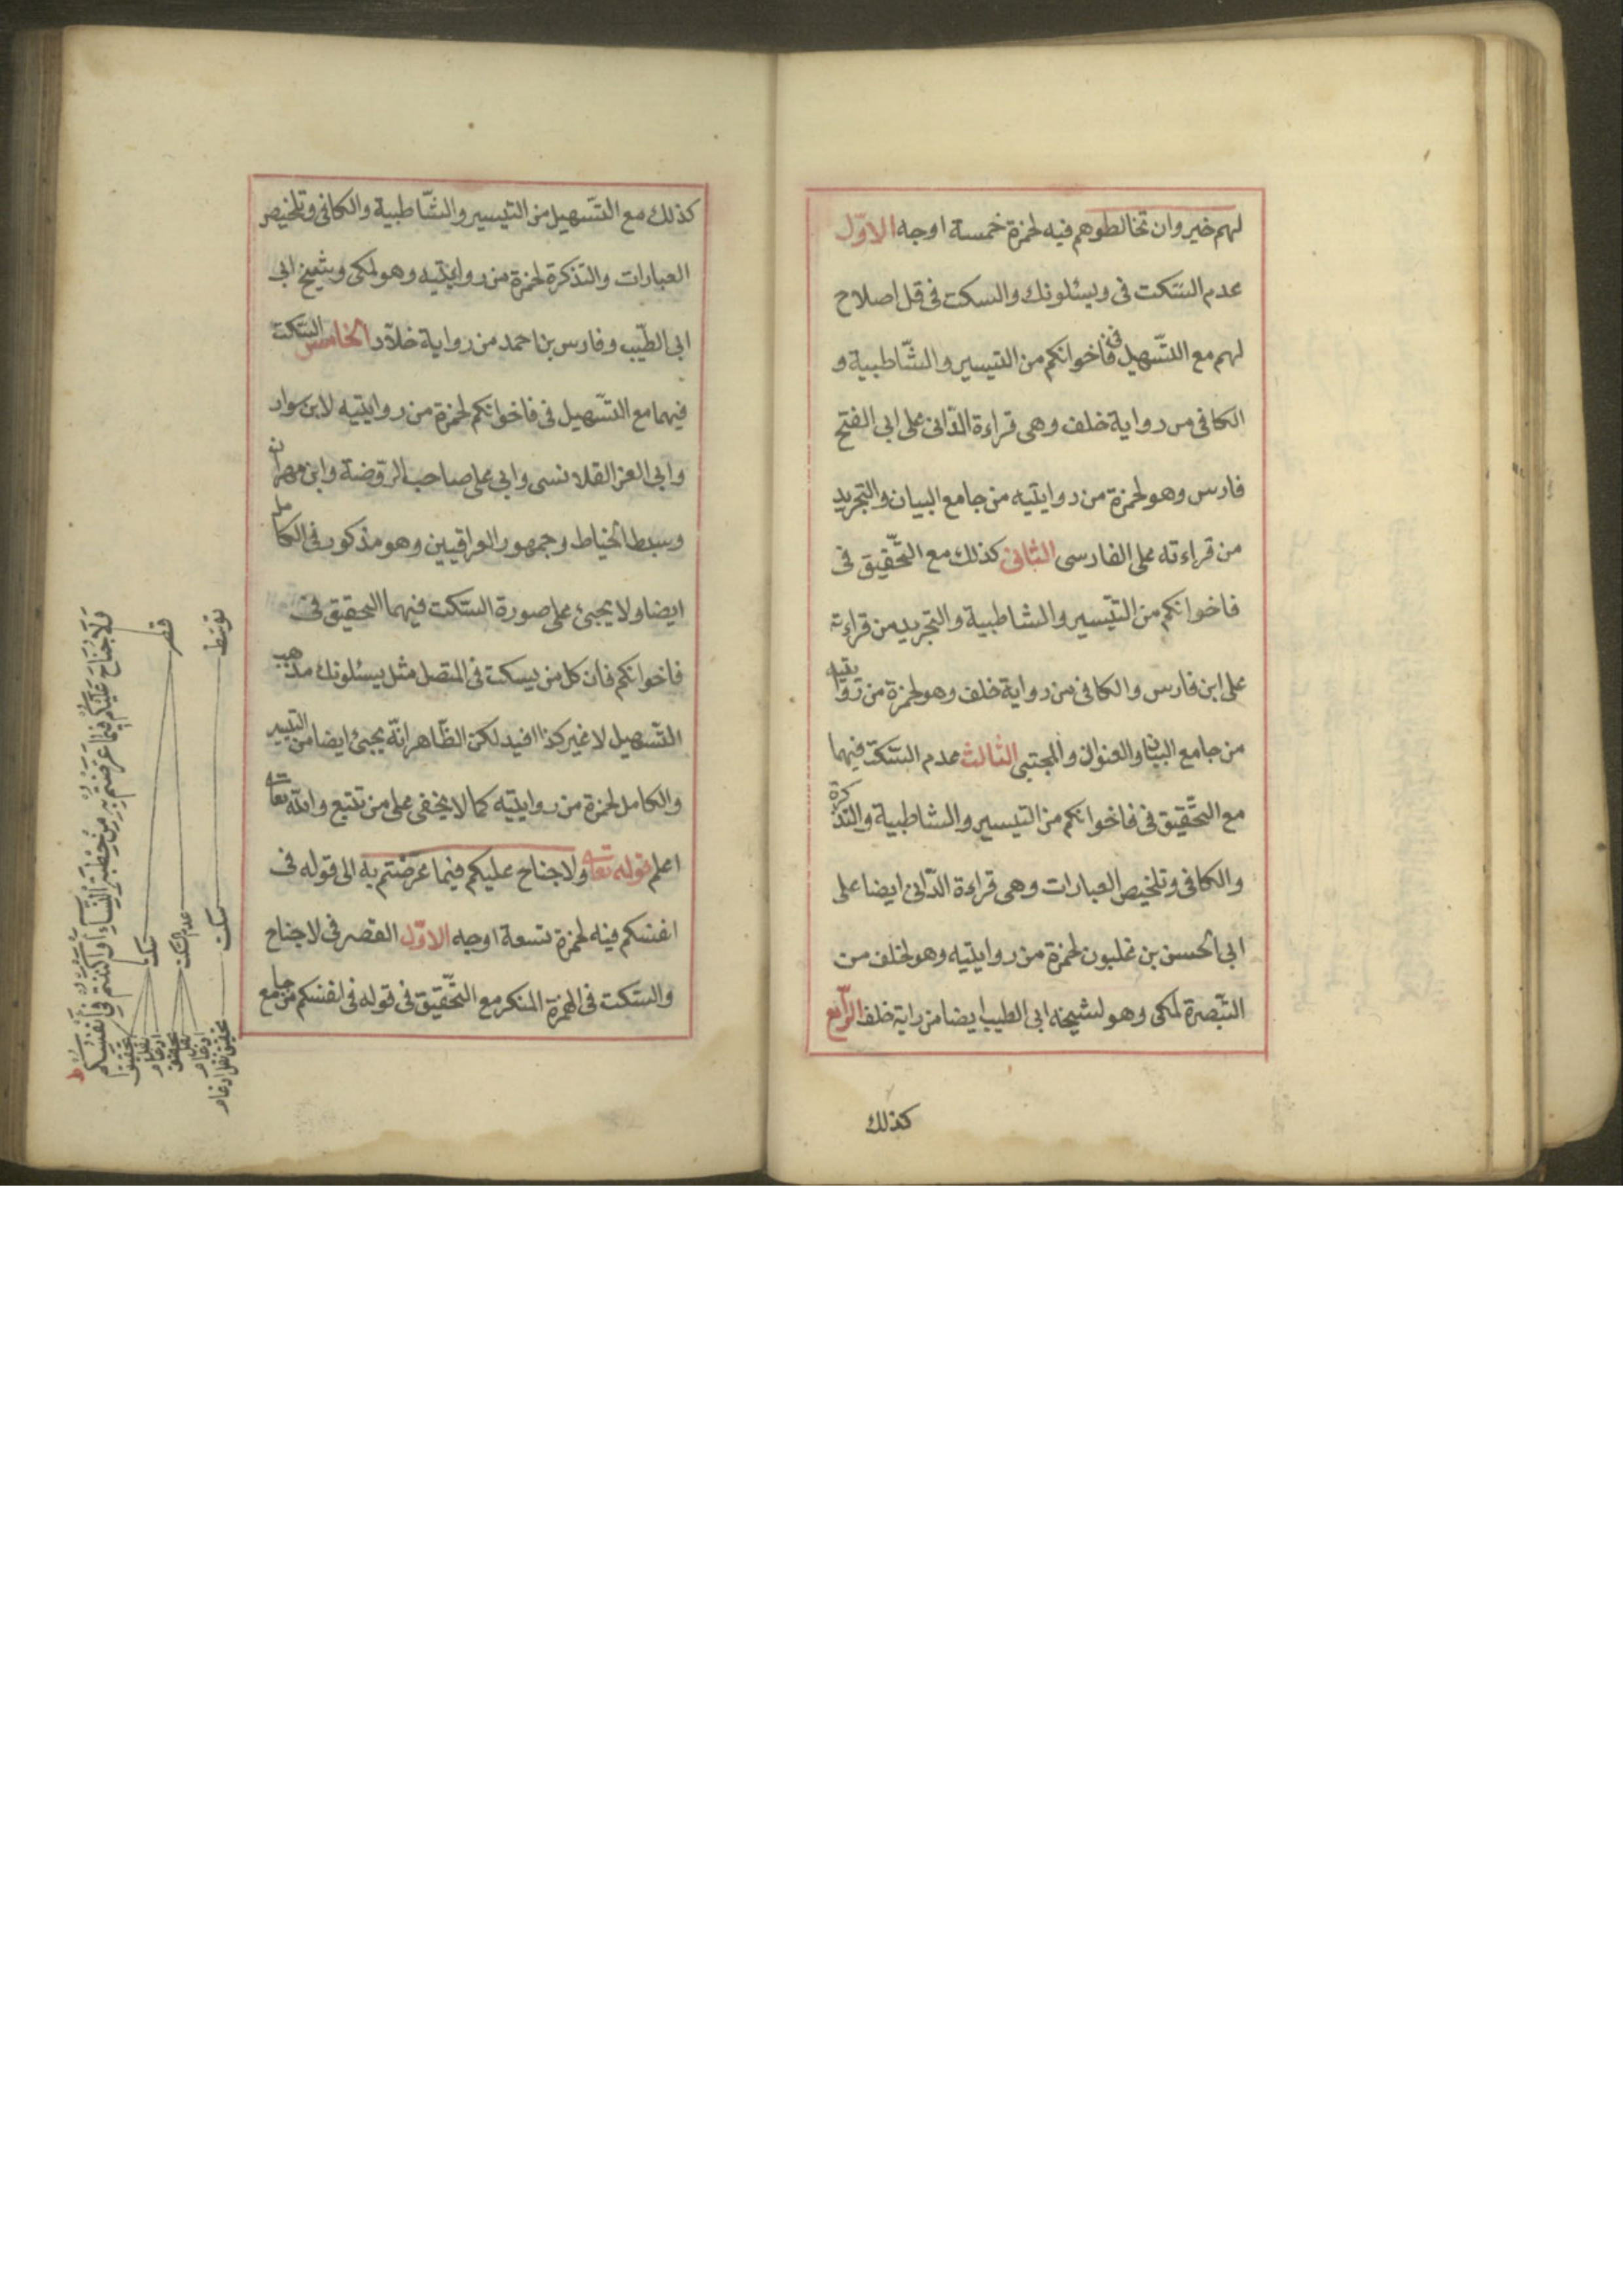 لهم خير وان تخالطوهم فيه لحمزة خمسة اوجه الاوّل
عدم السّكت فى ويسئلونك والسكت فى قل اصلاح
لهم مع التّسهيل فى فاخوانكم من التيسير والشّاطبية و
الكافى من رواية خلف وهى قراءة الدّانى على ابى الفتح
فارس وهو لحمزة من روايتيه من جامع البيان والتجريد
من قراءته على الفارسى الثانى كذلك مع التّحقيق فى
فاخوانكم من التّيسير والشاطبية والتجريد من قراءته
على ابن فارس والكافى من رواية خلف وهو لحمزة من روايتيه
من جامع البيان والعنوان والمجتبى الثالث عدم السّكت فيهما
مع التّحقيق فى فاخوانكم من التيسير والشاطبية والتذكرة
والكافى وتلخيص العبارات وهى قراءة الدّانى ايضا على
ابى الحسن بن غلبون لحمزة من روايتيه وهو لخلف من
التّبصرة لمكى وهو لشيخه ابى الطيب ايضا من راية خلف الرّابع
كذلك
كذلك مع التّسهيل من التيسير والشّاطبية والكافى وتلخيص
العبارات والتذكرة لحمزة من روايتيه وهو لمكى وشيخ ابى
ابى الطيّب وفارس بن احمد من رواية خلّاد الخامس السّكت
فيهما مع التّسهيل فى فاخوانكم لحمزة من روايتيه لابن سوار
وابى العز القلانسى وابى على صاحب الروضة وابن مهران
وسبط الخياط وجمهور العراقيين وهو مذكور فى الكامل
ايضا ولا يجىء على صورة السّكت فيهما التحقيق فى
فاخوانكم فان كل من يسكت فى المتصل مثل يسئلونك مذهب
التّسهيل لا غير كذا افيد لكن الظّاهر انّه يجىء ايضا من التيسير
والكامل لحمزة من روايتيه كما لا يخفى على من تتبع والله تعالى
اعلم قوله تعالى ولا جناح عليكم فيما عرضتم به الى قوله فى
انفسكم فيه لحمزة تسعة اوجه الاوّل القصر فى لا جناح
والسّكت فى الهمزة المنكر مع التّحقيق فى قوله فى انفسكم من جامع
وَلَا جُنَاحَ عَلَيْكُمْ فِيمَا عَرَّضْتُمْ بِهِ مِنْ خِطْبَةِ النِّسَاءِ أَوْ أَكْنَنْتُمْ فِي أَنْفُسِكُمْ
قصر
توسط
سكت
عدم السكت
سكت
تحقيق
نقل
ادغام
تحقيق
نقل
ادغام
تحقيق نقل ادغام